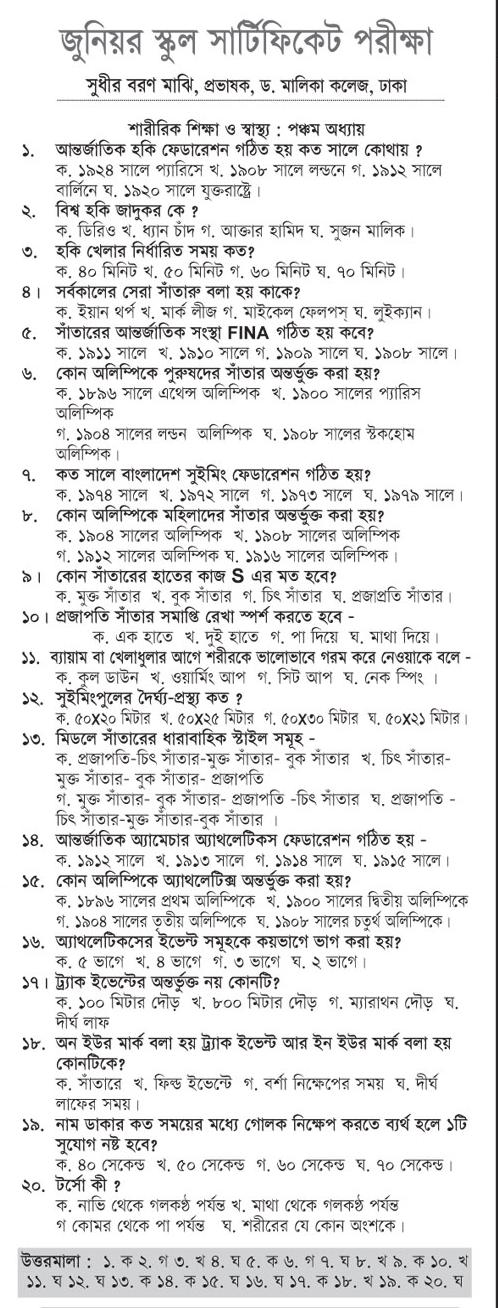 জুনিয়র স্কুল সার্টিফিকেট পরীক্ষা
সুধীর বরণ মাঝি, প্রভাষক, ড. মালিকা কলেজ, ঢাকা
শারীরিক শিক্ষা ও স্বাস্থ্য : পঞ্চম অধ্যায়
১. আন্তর্জাতিক হকি ফেডারেশন গঠিত হয় কত সালে কোথায় ?
ক. ১৯২৪ সালে প্যারিসে খ. ১৯০৮ সালে লন্ডনে গ. ১৯১২ সালে
বার্লিনে ঘ. ১৯২০ সালে যুক্তরাষ্ট্রে।
২. বিশ্ব হকি জাদুকর কে ?
ক. ডিরিও খ. ধ্যান চাঁদ গ. আক্তার হামিদ ঘ. সুজন মালিক।
৩. হকি খেলার নির্ধারিত সময় কত?
ক. ৪০ মিনিট খ. ৫০ মিনিট গ. ৬০ মিনিট ঘ. ৭০ মিনিট।
৪। সর্বকালের সেরা সাঁতারু বলা হয় কাকে?
ক. ইয়ান থর্প খ. মার্ক লীজ গ. মাইকেল ফেলপস্ ঘ. লুইক্যান।
৫. সাঁতারের আন্তর্জাতিক সংস্থা FINA গঠিত হয় কবে?
ক. ১৯১১ সালে খ. ১৯১০ সালে গ. ১৯০৯ সালে ঘ. ১৯০৮ সালে।
৬. কোন অলিম্পিকে পুরুষদের সাঁতার অন্তর্ভুক্ত করা হয়?
ক. ১৮৯৬ সালে এথেন্স অলিম্পিক খ. ১৯০০ সালের প্যারিস
অলিম্পিক
গ. ১৯০৪ সালের লন্ডন অলিম্পিক ঘ. ১৯০৮ সালের স্টকহোম
অলিম্পিক।
৭. কত সালে বাংলাদেশ সুইমিং ফেডারেশন গঠিত হয়?
ক. ১৯৭৪ সালে খ. ১৯৭২ সালে গ. ১৯৭৩ সালে ঘ. ১৯৭৯ সালে।
৮. কোন অলিম্পিকে মহিলাদের সাঁতার অন্তর্ভুক্ত করা হয়?
ক. ১৯০৪ সালের অলিম্পিক খ. ১৯০৮ সালের অলিম্পিক
গ. ১৯১২ সালের অলিম্পিক ঘ. ১৯১৬ সালের অলিম্পিক।
৯। কোন সাঁতারের হাতের কাজ S এর মত হবে?
ক. মুক্ত সাঁতার খ. বুক সাঁতার গ. চিৎ সাঁতার ঘ. প্রজাপ্রতি সাঁতার।
১০। প্রজাপতি সাঁতার সমাপ্তি রেখা স্পর্শ করতে হবে -
ক. এক হাতে খ. দুই হাতে গ. পা দিয়ে ঘ. মাথা দিয়ে।
১১. ব্যায়াম বা খেলাধুলার আগে শরীরকে ভালোভাবে গরম করে নেওয়াকে বলে -
ক. কুল ডাউন খ. ওয়ার্মিং আপ গ. সিট আপ ঘ. নেক স্পিং ।
১২. সুইমিংপুলের দৈর্ঘ্য-প্রস্থ্য কত ?
ক. ৫০X২০ মিটার খ. ৫০X২৫ মিটার গ. ৫০X৩০ মিটার ঘ. ৫০X২১ মিটার।
১৩. মিডলে সাঁতারের ধারাবাহিক স্টাইল সমূহ -
ক. প্রজাপতি-চিৎ সাঁতার-মুক্ত সাঁতার- বুক সাঁতার খ. চিৎ সাঁতার-
মুক্ত সাঁতার- বুক সাঁতার- প্রজাপতি
গ. মুক্ত সাঁতার- বুক সাঁতার- প্রজাপতি -চিৎ সাঁতার ঘ. প্রজাপতি -
চিৎ সাঁতার-মুক্ত সাঁতার-বুক সাঁতার ।
১৪. আন্তর্জাতিক অ্যামেচার অ্যাথলেটিকস ফেডারেশন গঠিত হয় -
ক. ১৯১২ সালে খ. ১৯১৩ সালে গ. ১৯১৪ সালে ঘ. ১৯১৫ সালে।
১৫. কোন অলিম্পিকে অ্যাথলেটিক্স অন্তর্ভুক্ত করা হয়?
ক. ১৮৯৬ সালের প্রথম অলিম্পিকে খ. ১৯০০ সালের দ্বিতীয় অলিম্পিকে
গ. ১৯০৪ সালের তৃতীয় অলিম্পিকে ঘ. ১৯০৮ সালের চতুর্থ অলিম্পিকে।
১৬. অ্যাথলেটিকসের ইভেন্ট সমূহকে কয়ভাগে ভাগ করা হয়?
ক. ৫ ভাগে খ. ৪ ভাগে গ. ৩ ভাগে ঘ. ২ ভাগে।
১৭। ট্র্যাক ইভেন্টের অন্তর্ভুক্ত নয় কোনটি?
ক. ১০০ মিটার দৌড় খ. ৮০০ মিটার দৌড় গ. ম্যারাথন দৌড় ঘ.
দীর্ঘ লাফ
১৮. অন ইউর মার্ক বলা হয় ট্র্যাক ইভেন্টে আর ইন ইউর মার্ক বলা হয়
কোনটিকে?
ক. সাঁতারে খ. ফিল্ড ইভেন্টে গ. বর্শা নিক্ষেপের সময় ঘ. দীর্ঘ
লাফের সময়।
১৯. নাম ডাকার কত সময়ের মধ্যে গোলক নিক্ষেপ করতে ব্যর্থ হলে ১টি
সুযোগ নষ্ট হবে?
ক. ৪০ সেকেন্ড খ. ৫০ সেকেন্ড গ. ৬০ সেকেন্ড ঘ. ৭০ সেকেন্ড।
২০. টর্সো কী ?
ক. নাভি থেকে গলকণ্ঠ পর্যন্ত খ. মাথা থেকে গলকণ্ঠ পর্যন্ত
গ কোমর থেকে পা পর্যন্ত ঘ. শরীরের যে কোন অংশকে।
উত্তরমালা : ১. ক ২. গ ৩. খ ৪. ঘ ৫. ক ৬. গ ৭. ঘ ৮. খ ৯. ক ১০. খ
১১. ঘ ১২. ঘ ১৩. ক ১৪. ক ১৫. ঘ ১৬. ঘ ১৭. ক ১৮. খ ১৯. ক ২০. ঘ